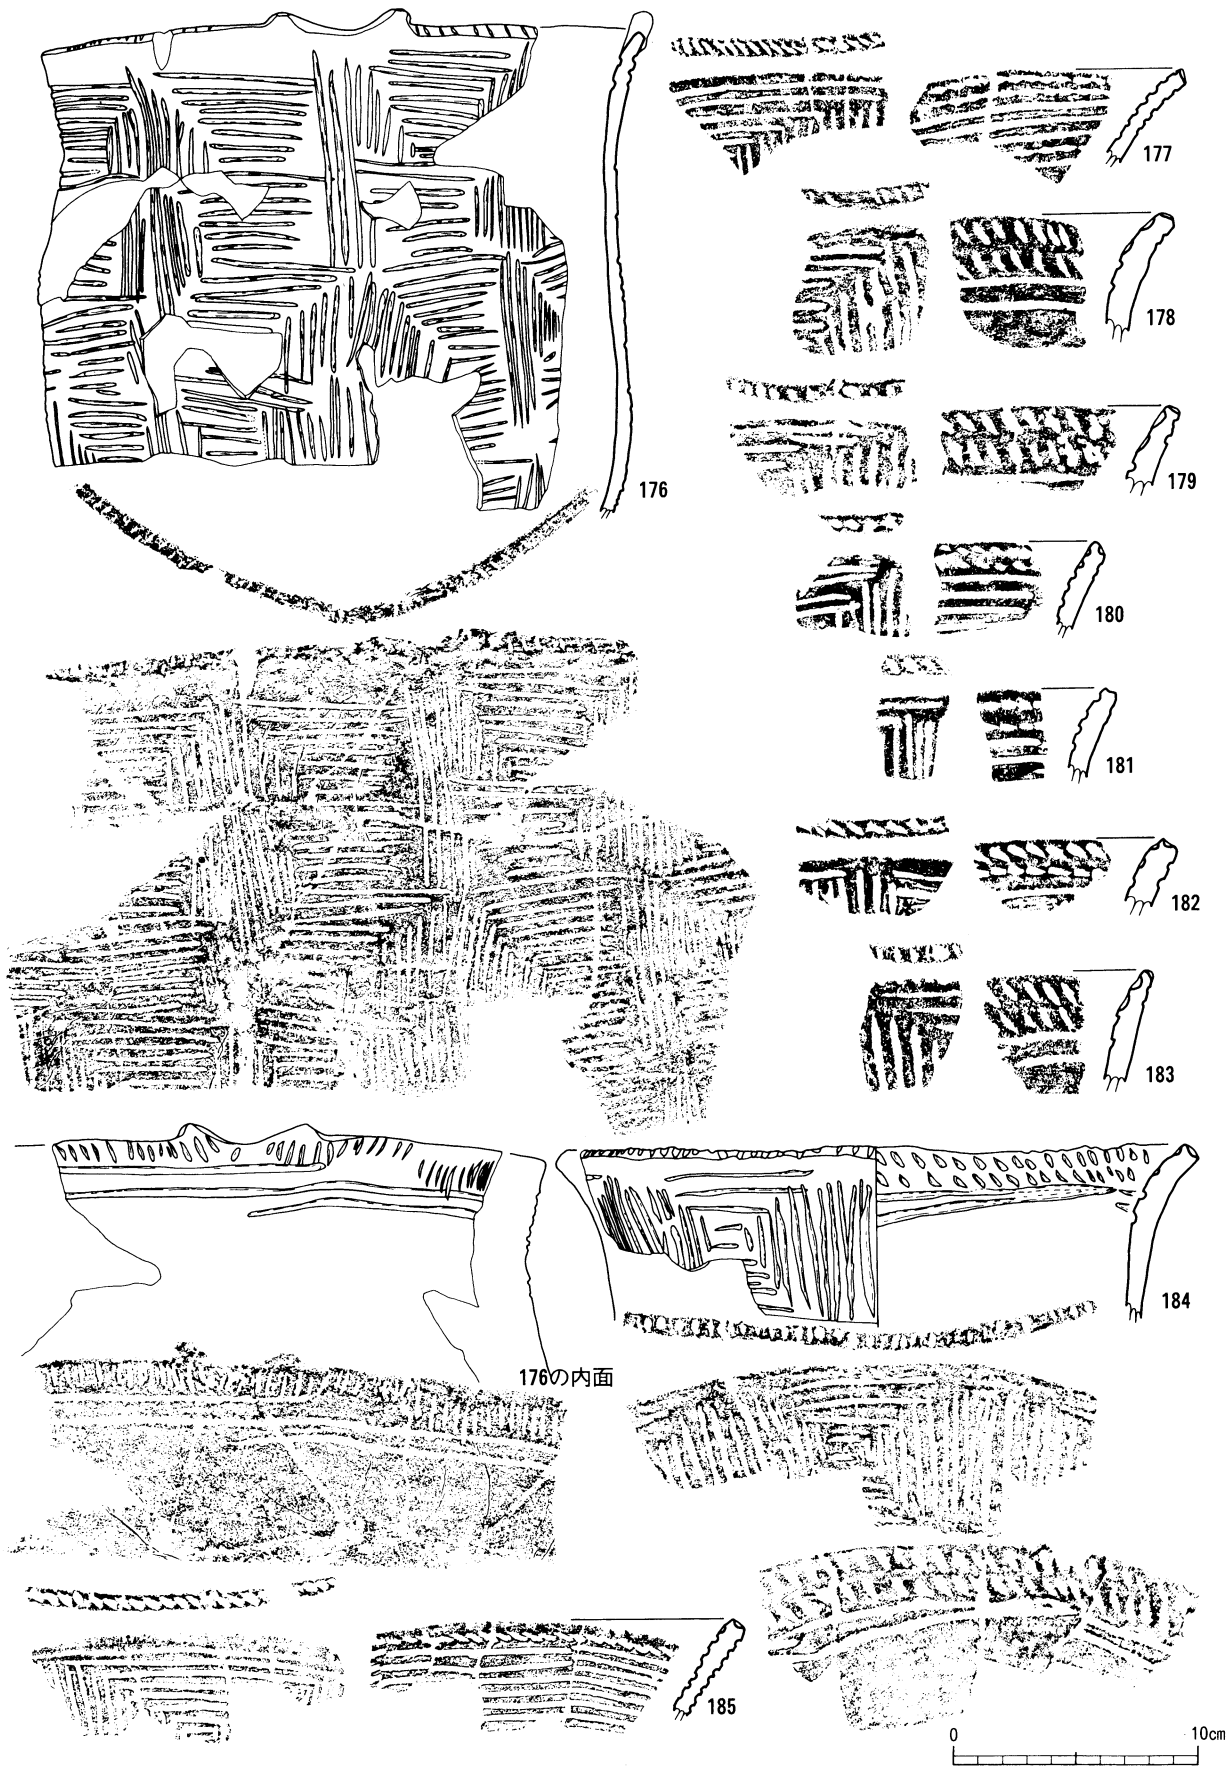 176
177
178
179
180
181
182
183
184
176の内面
185
0 10cm